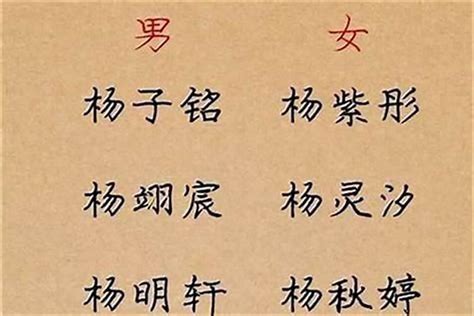 男 女
杨子铭 杨紫彤
杨翊宸 杨灵汐
杨明轩 杨秋婷